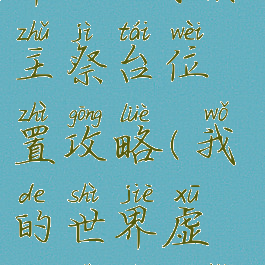 zhǔ jì tái wèi
主祭台位
zhì gōng lüè wǒ
置攻略(我
de shì jiè xū
的世界虚